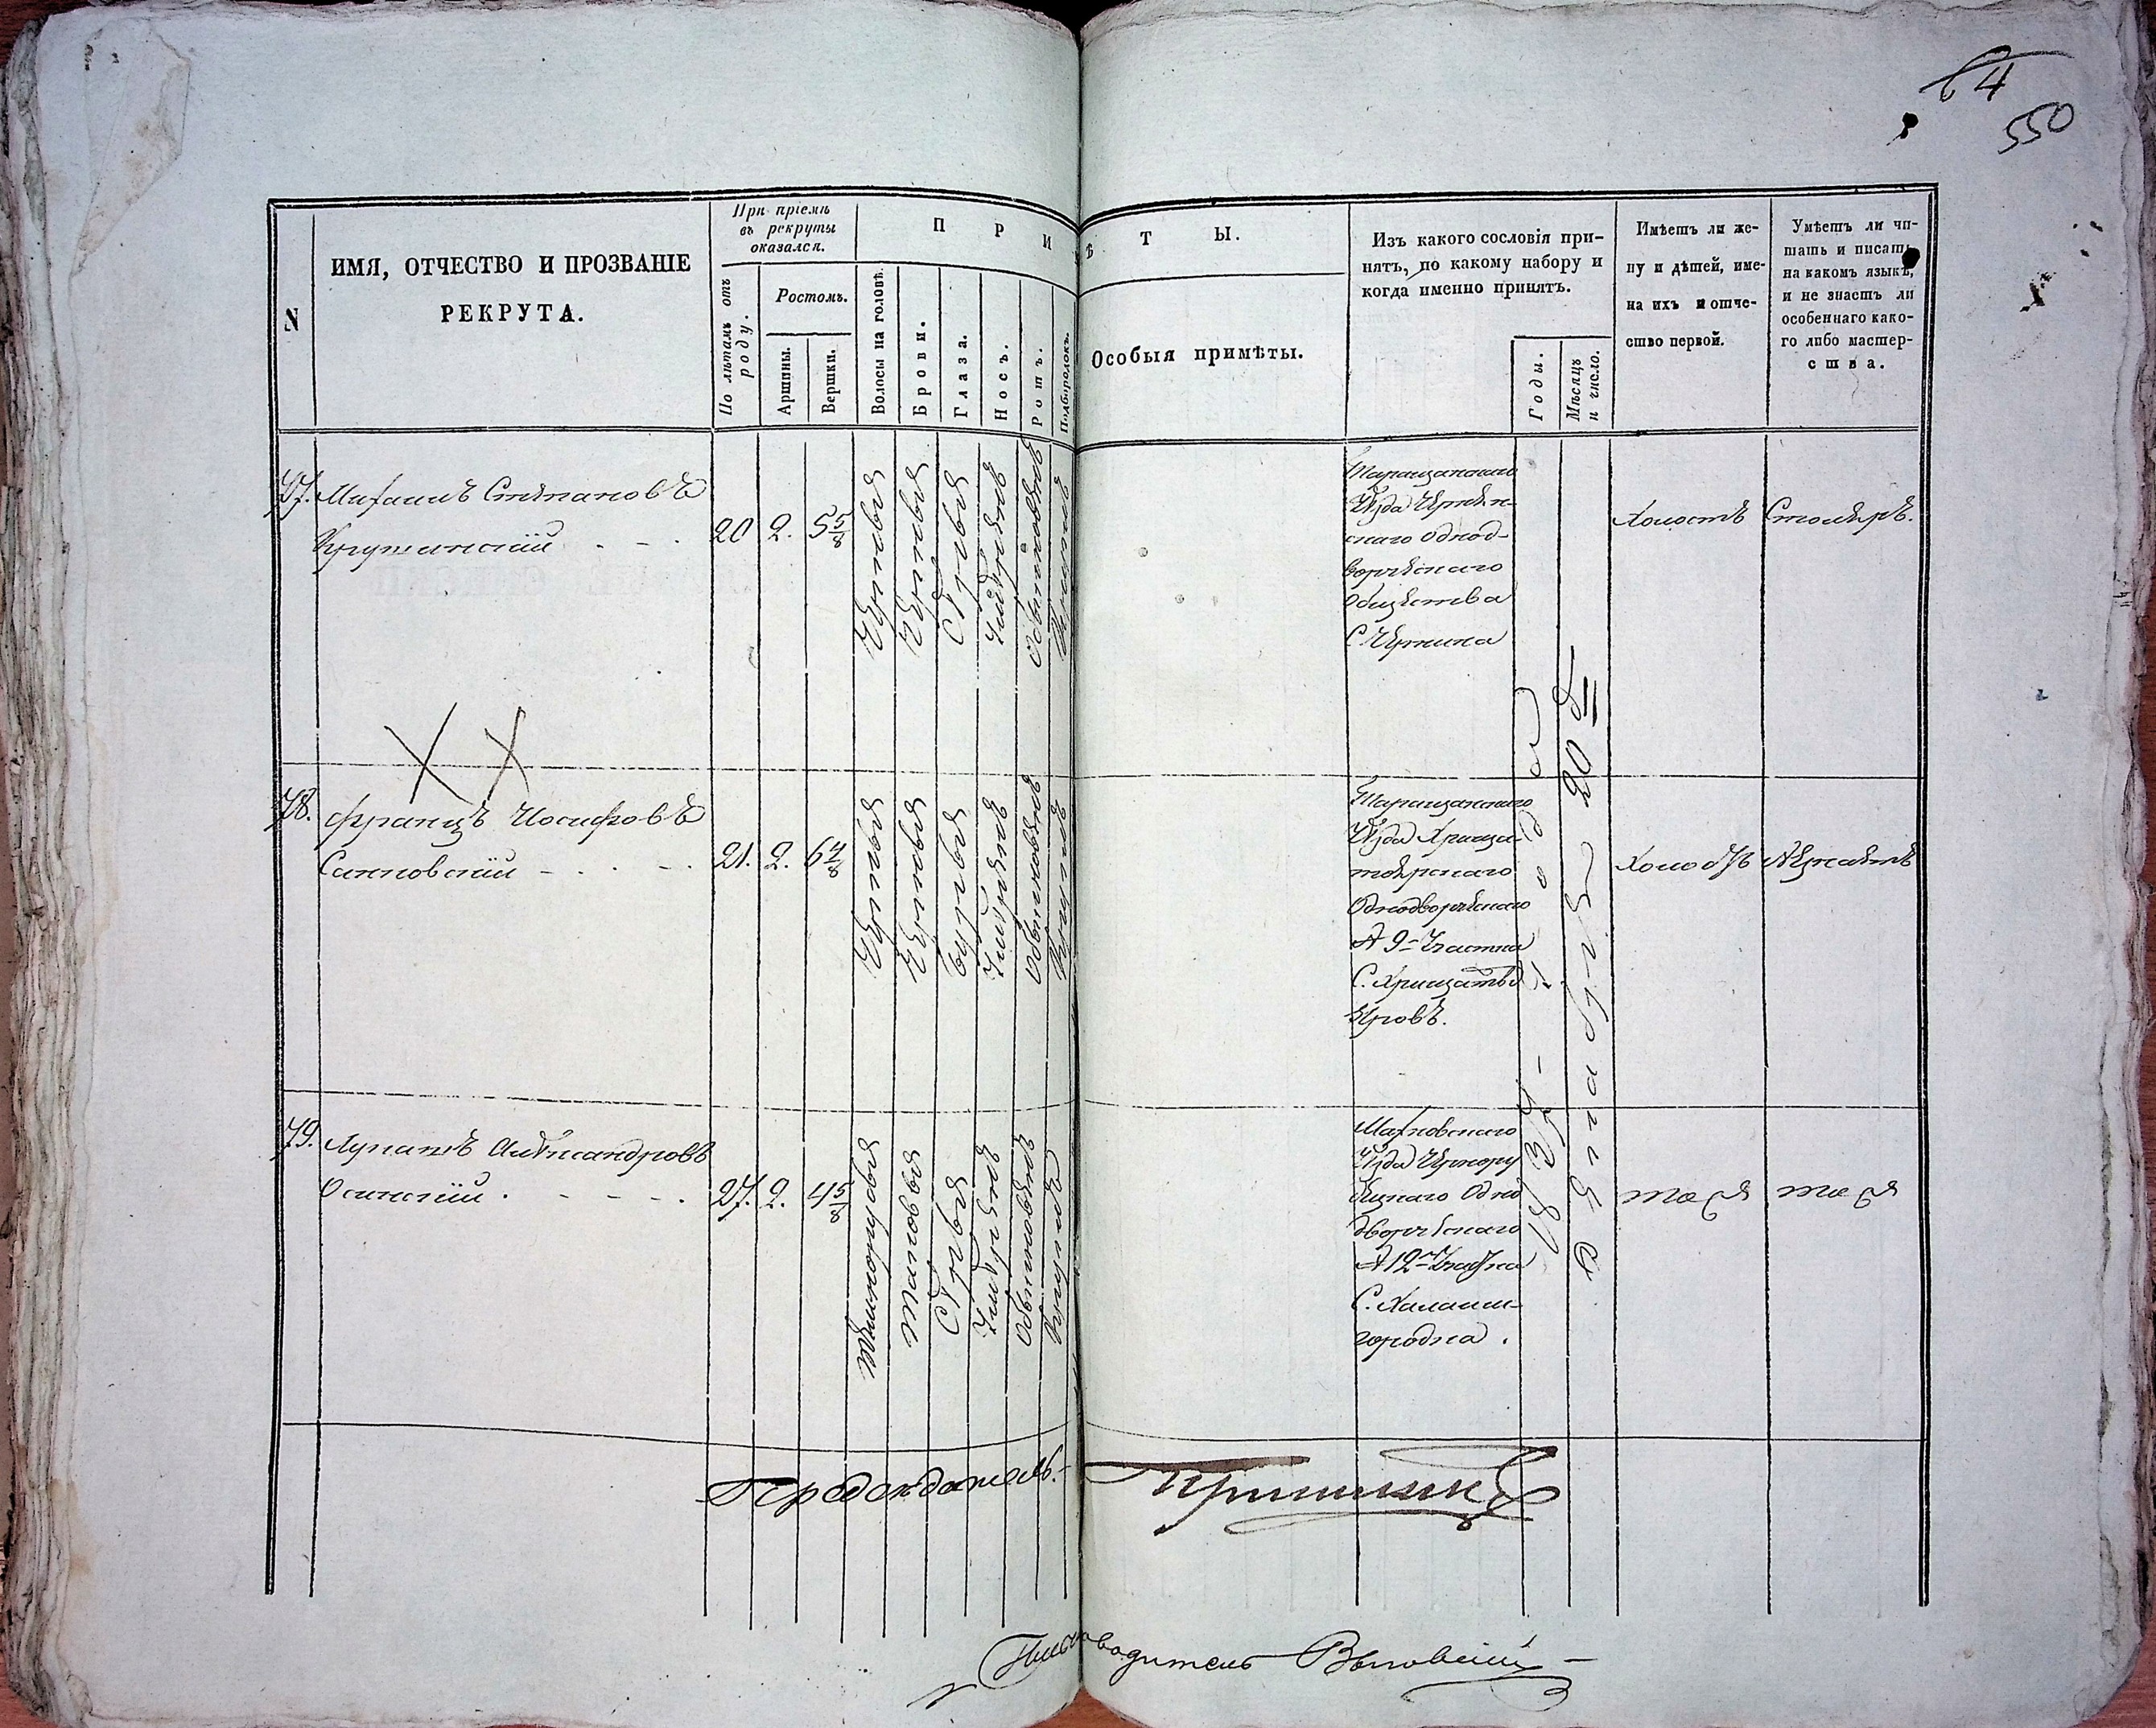 64
550
N
ИМЯ, ОТЧЕСТВО И ПРОЗВАНІЕ
РЕКРУТА.
При пріемѣ
въ рекруты
оказался.
По лѣтамъ отъ
роду.
Ростомъ.
Аршины.
Вершки.
П Р И
Волосы на головѣ.
Брови.
Глаза.
Носъ.
Ротъ.
Подбородокъ.
Ѣ Т Ы.
Особыя примѣты.
Изъ какого сословія при-
нятъ, по какому набору и
когда именно принятъ.
Годы.
Мѣсяцъ
и число.
Имѣетъ ли же-
ну и дѣтей, име-
на ихъ и отче-
ство первой.
Умѣетъ ли чи-
тать и писать
на какомъ языкѣ,
и не знаетъ ли
особеннаго како-
го либо мастер-
ства.
77. Михаилъ Степановъ
Крушинскій
20 2. 5 5/8
Черныя
Черныя
Сѣрыя
Умѣренъ
Обыкновенъ
Круглъ
Таращанскаго
Уѣзда Чернин-
скаго Однод-
ворческаго
Общества
С. Чернина
Холостъ
Столяръ.
78. Францъ Іосифовъ
21. 2. 6 4/8
Черныя
Черныя
Бурыя
Умѣренъ
Обыкновенъ
Круглъ
Таращанскаго
Уѣзда Хрища-
терскаго
Однодворческаго
А 9 Участка
Холостъ
Не знаетъ
79. Лукашъ Александровъ
Осинскій
27. 2. 4 5/8
Темнорусыя
Таковыя
Сѣрыя
Умѣренъ
Обыкновенъ
Круглъ
Махновскаго
Уѣзда Черногру
бецкаго Одно
дворческаго
А 12 Участка
С. Халаим-
городка.
1834 года
Декабря 20
тоже
тоже
Предсѣдатель